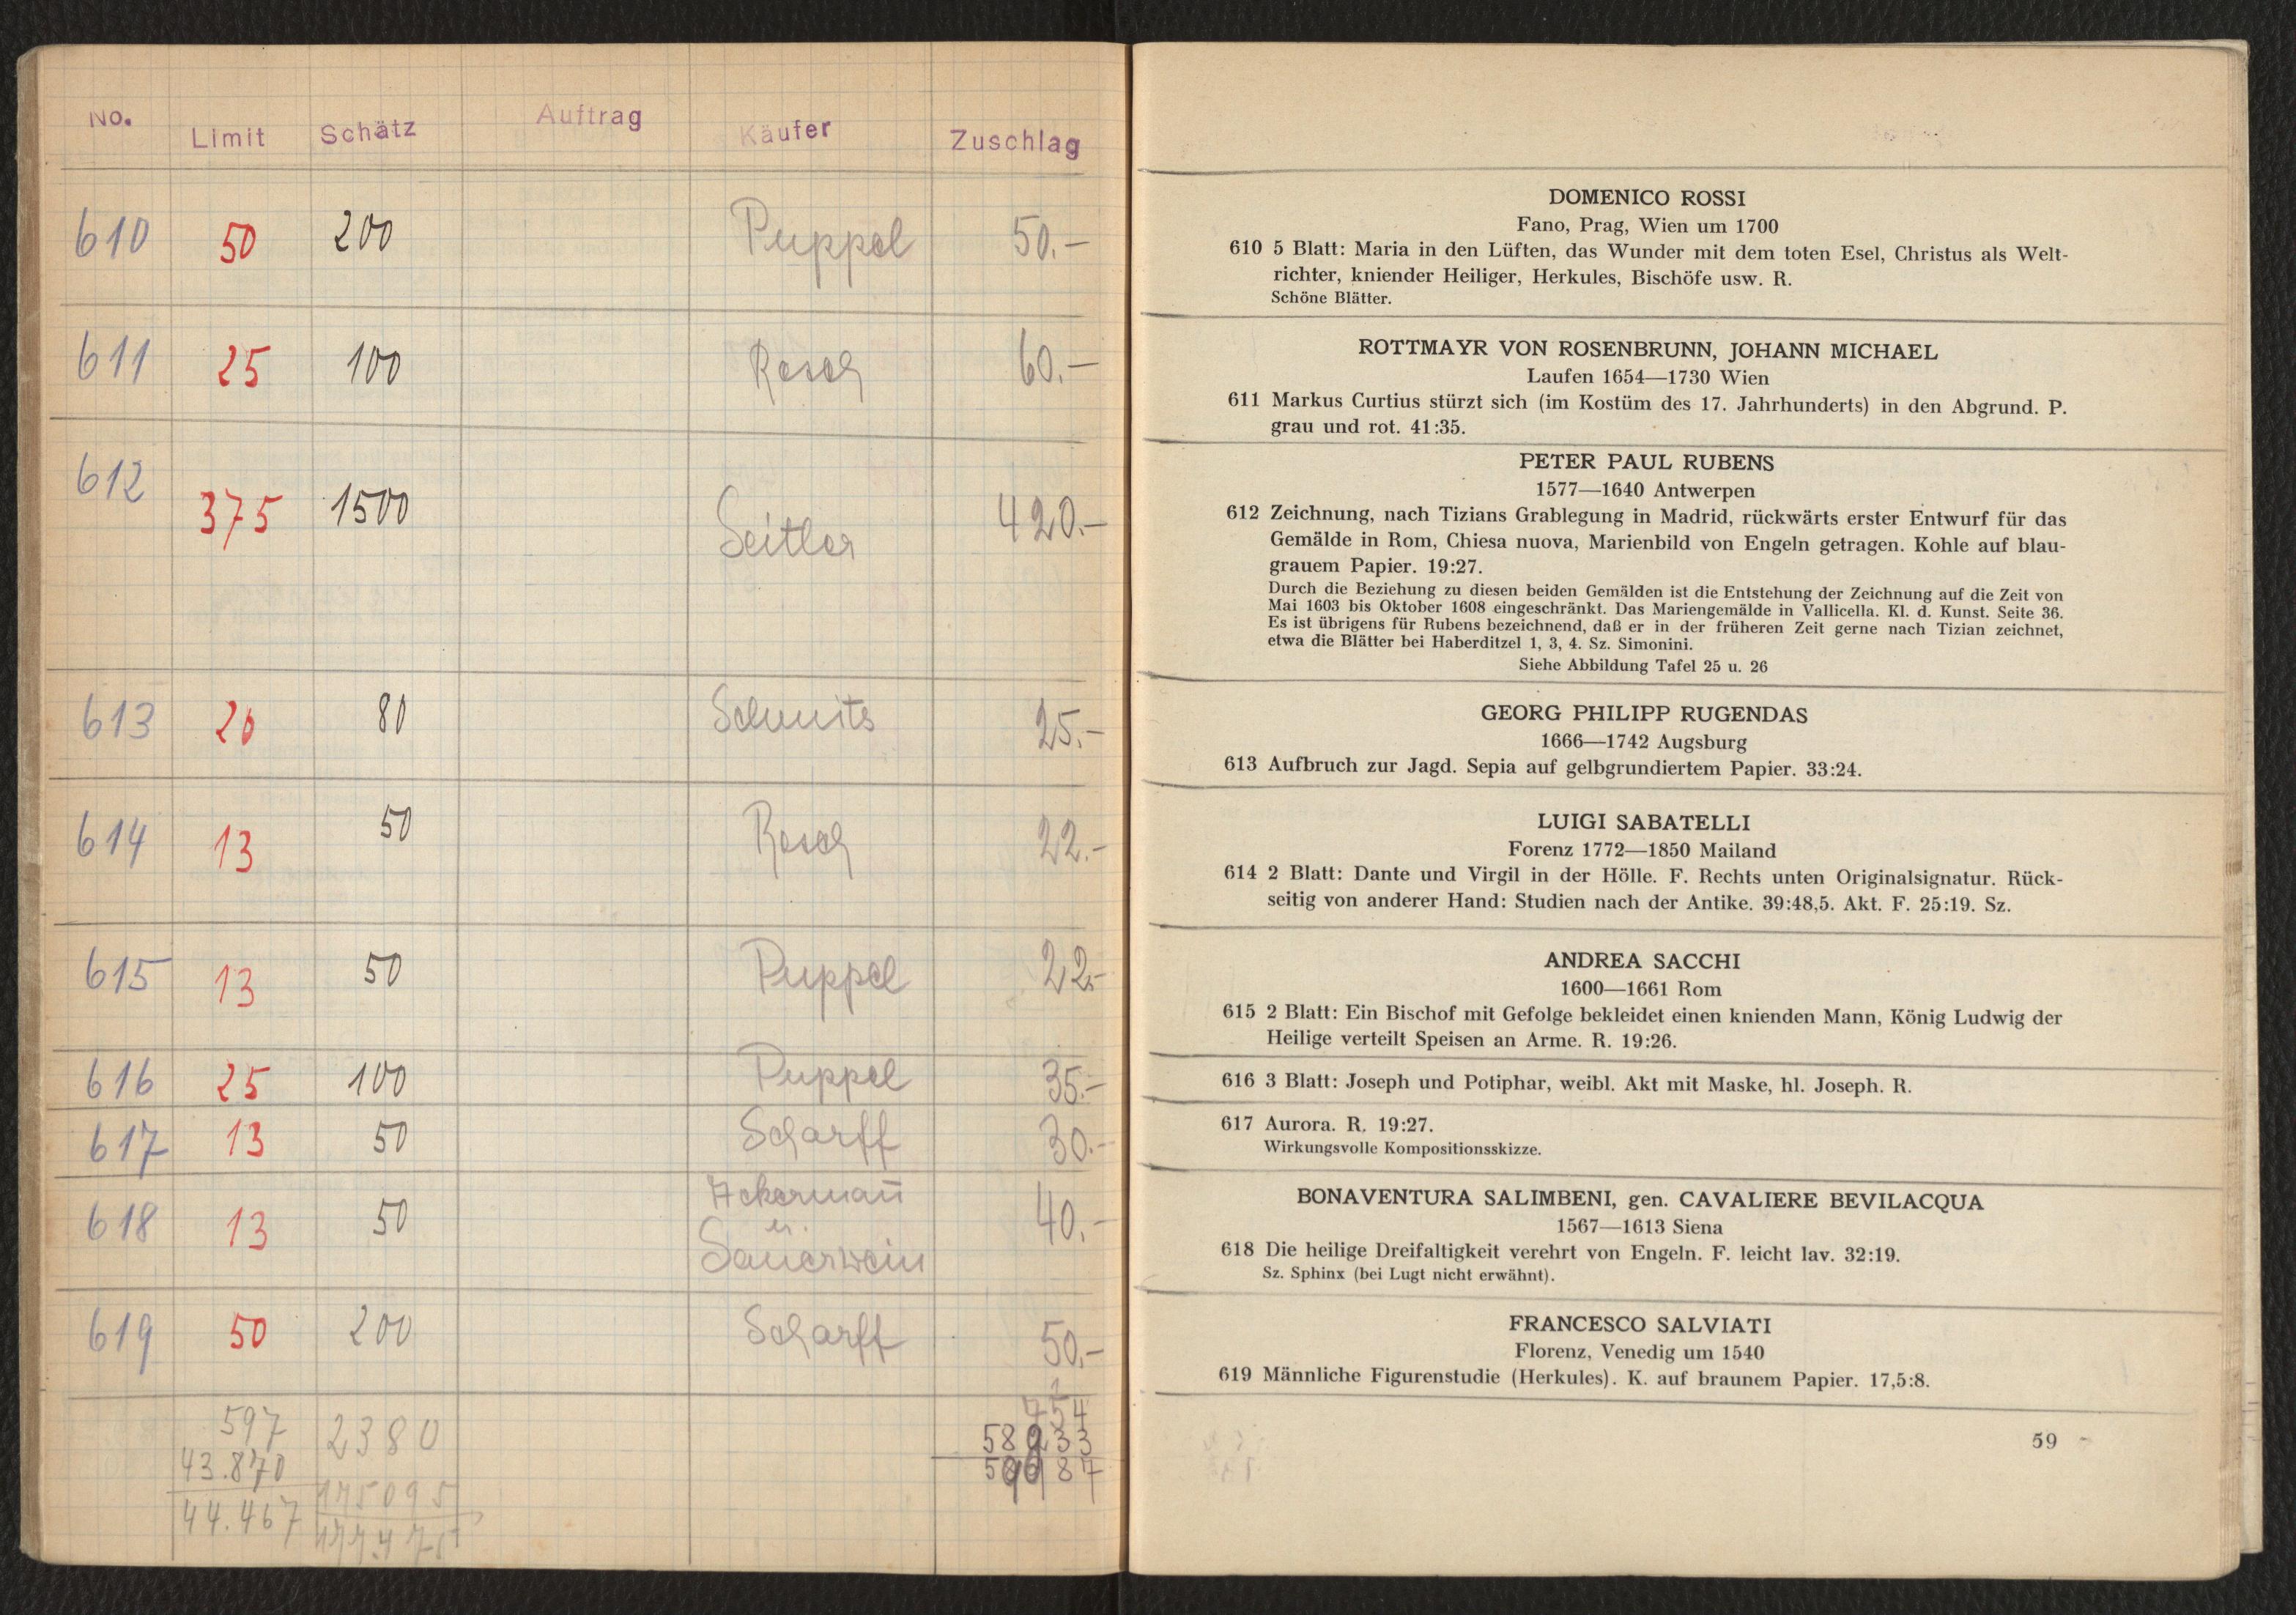 No. Limit Schätz Auftrag Käufer Zuschlag
610 50 200 Puppel 50.-
611 25 100 Rosch 60.-
612 375 1500 Seitler 420.-
613 20 80 Schmits 25.-
614 13 50 Rosch 22.-
615 13 50 Puppel 22.-
616 25 100 Puppel 35.-
617 13 50 Scharff 30.-
618 13 50 Ackermañ u. Sauerwein 40.-
619 50 200 Scharff 50.-
597 2380 754
43.870 175095
44.467
DOMENICO ROSSI
Fano, Prag, Wien um 1700
610 5 Blatt: Maria in den Lüften, das Wunder mit dem toten Esel, Christus als Welt-
richter, kniender Heiliger, Herkules, Bischöfe usw. R.
Schöne Blätter.
ROTTMAYR VON ROSENBRUNN, JOHANN MICHAEL
Laufen 1654—1730 Wien
611 Markus Curtius stürzt sich (im Kostüm des 17. Jahrhunderts) in den Abgrund. P.
grau und rot. 41:35.
PETER PAUL RUBENS
1577—1640 Antwerpen
612 Zeichnung, nach Tizians Grablegung in Madrid, rückwärts erster Entwurf für das
Gemälde in Rom, Chiesa nuova, Marienbild von Engeln getragen. Kohle auf blau-
grauem Papier. 19:27.
Durch die Beziehung zu diesen beiden Gemälden ist die Entstehung der Zeichnung auf die Zeit von
Mai 1603 bis Oktober 1608 eingeschränkt. Das Mariengemälde in Vallicella. Kl. d. Kunst. Seite 36.
Es ist übrigens für Rubens bezeichnend, daß er in der früheren Zeit gerne nach Tizian zeichnet,
etwa die Blätter bei Haberditzel 1, 3, 4. Sz. Simonini.
Siehe Abbildung Tafel 25 u. 26
GEORG PHILIPP RUGENDAS
1666—1742 Augsburg
613 Aufbruch zur Jagd. Sepia auf gelbgrundiertem Papier. 33:24.
LUIGI SABATELLI
Forenz 1772—1850 Mailand
614 2 Blatt: Dante und Virgil in der Hölle. F. Rechts unten Originalsignatur. Rück-
seitig von anderer Hand: Studien nach der Antike. 39:48,5. Akt. F. 25:19. Sz.
ANDREA SACCHI
1600—1661 Rom
615 2 Blatt: Ein Bischof mit Gefolge bekleidet einen knienden Mann, König Ludwig der
Heilige verteilt Speisen an Arme. R. 19:26.
616 3 Blatt: Joseph und Potiphar, weibl. Akt mit Maske, hl. Joseph. R.
617 Aurora. R. 19:27.
Wirkungsvolle Kompositionsskizze.
BONAVENTURA SALIMBENI, gen. CAVALIERE BEVILACQUA
1567—1613 Siena
618 Die heilige Dreifaltigkeit verehrt von Engeln. F. leicht lav. 32:19.
Sz. Sphinx (bei Lugt nicht erwähnt).
FRANCESCO SALVIATI
Florenz, Venedig um 1540
619 Männliche Figurenstudie (Herkules). K. auf braunem Papier. 17,5:8.
59